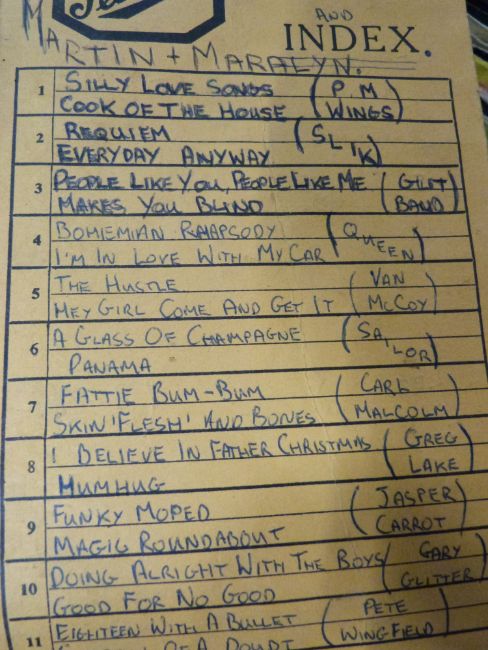 AND
INDEX.
MARTIN + MARALYN.
1 SILLY LOVE SONGS (P. M
COOK OF THE HOUSE WINGS)
2 REQUIEM (SLIK)
EVERYDAY ANYWAY
3 PEOPLE LIKE YOU, PEOPLE LIKE ME (GLITT
MAKES YOU BLIND BAND)
4 BOHEMIAN RHAPSODY (QUEEN)
I'M IN LOVE WITH MY CAR
5 THE HUSTLE (VAN
HEY GIRL COME AND GET IT McCOY)
6 A GLASS OF CHAMPAGNE (SAILOR)
PANAMA
7 FATTIE BUM-BUM (CARL
SKIN 'FLESH' AND BONES MALCOLM)
8 I BELIEVE IN FATHER CHRISTMAS (GREG
HUMHUG LAKE)
9 FUNKY MOPED (JASPER
MAGIC ROUNDABOUT CARROT)
10 DOING ALRIGHT WITH THE BOYS (GARY
GOOD FOR NO GOOD GLITTER)
11 EIGHTEEN WITH A BULLET (PETE
OF A DOUBT WINGFIELD)